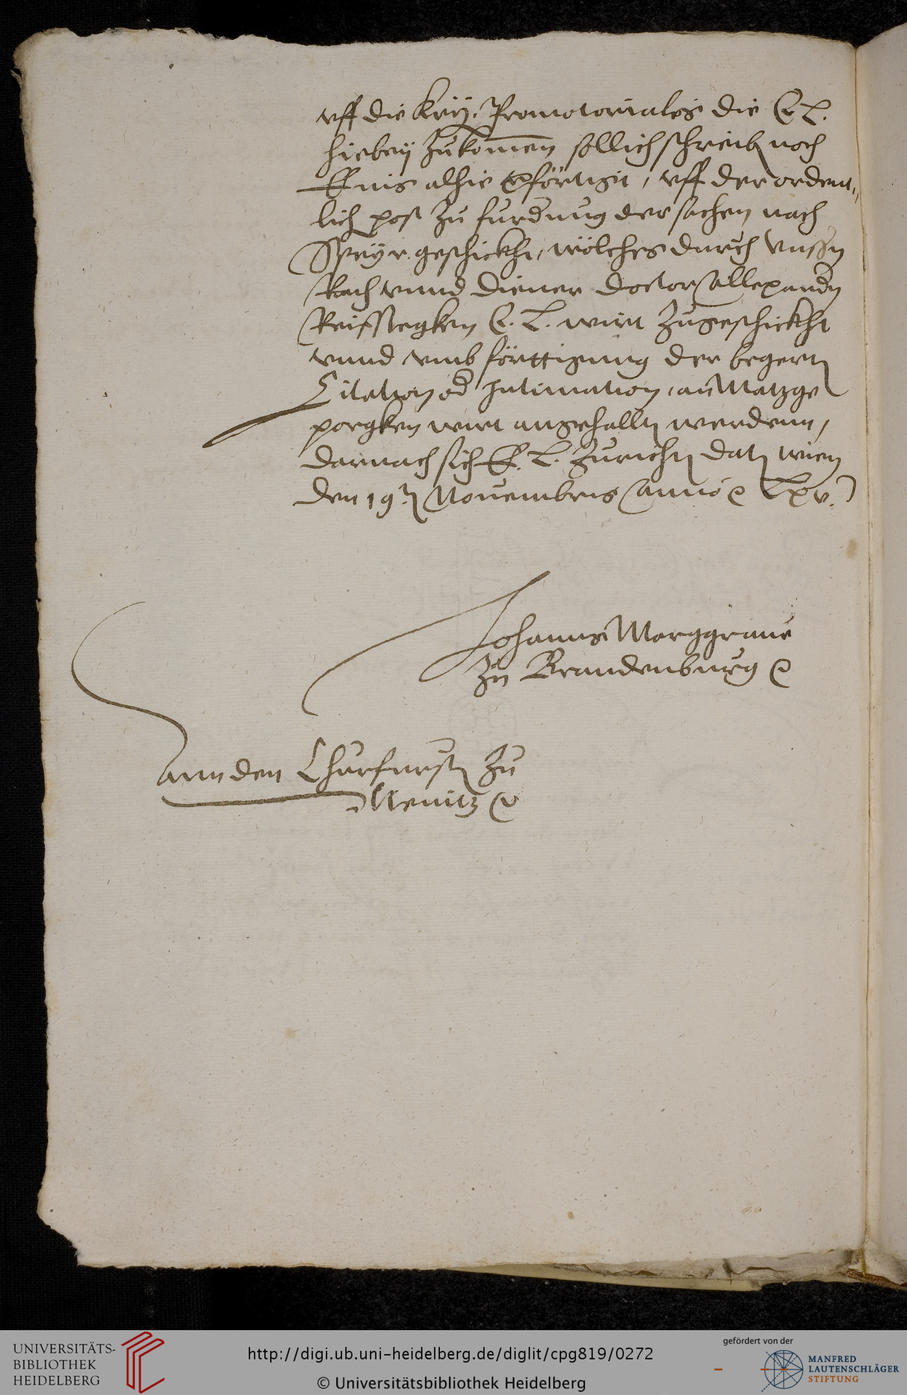 vff die Key: Promotoriales die E. L.
hiebey Zukomen sollich schreib noch
alhie vförtigt, vff der ordent„
lich post Zu furdnug der sachen nach
Speyr geschickht, wölches durch vnssn
Rath vnnd diener doctor allexandn
Reiffstegken E. L. wirt Zugeschickht
vnnd vmb förttigung der begertn
Citation od Intimation, an Matzge
porgken wirt angehalltn werdenn,
darnach sich E. L. Zurichtn datn wien
den 19 tn Nouembris anno Lxv.
Johanns Marggraue
Zu Brandenburg
ann den Churfurstn Zu
Menntz
UNIVERSITÄTS-
BIBLIOTHEK
HEIDELBERG
http://digi.ub.uni-heidelberg.de/diglit/cpg819/0272
© Universitätsbibliothek Heidelberg
gefördert von der
MANFRED
LAUTENSCHLÄGER
STIFTUNG